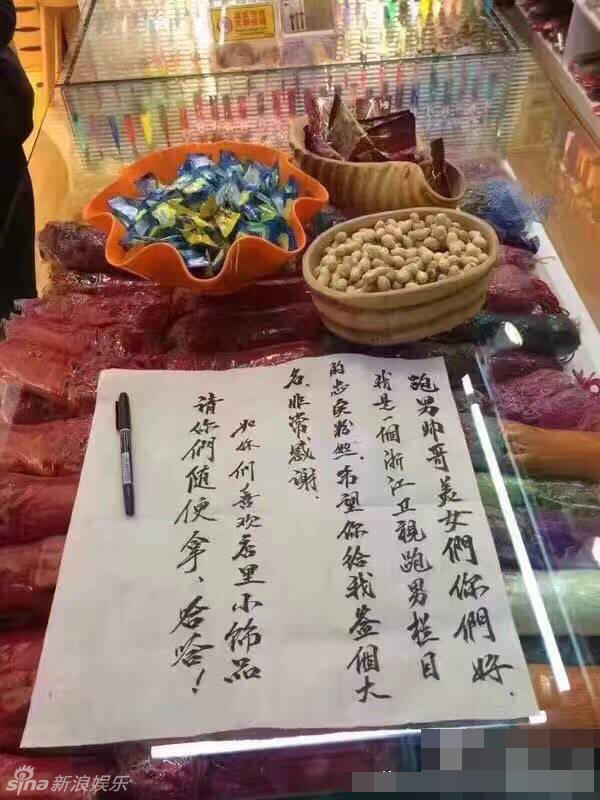 跑男帅哥美女們你們好、
我是一個浙江卫視跑男栏目
的忠实粉丝、希望你给我签個大
名、非常感謝、
如你们喜欢店里小飾品
請你們随便拿、哈哈！
sina新浪娱乐